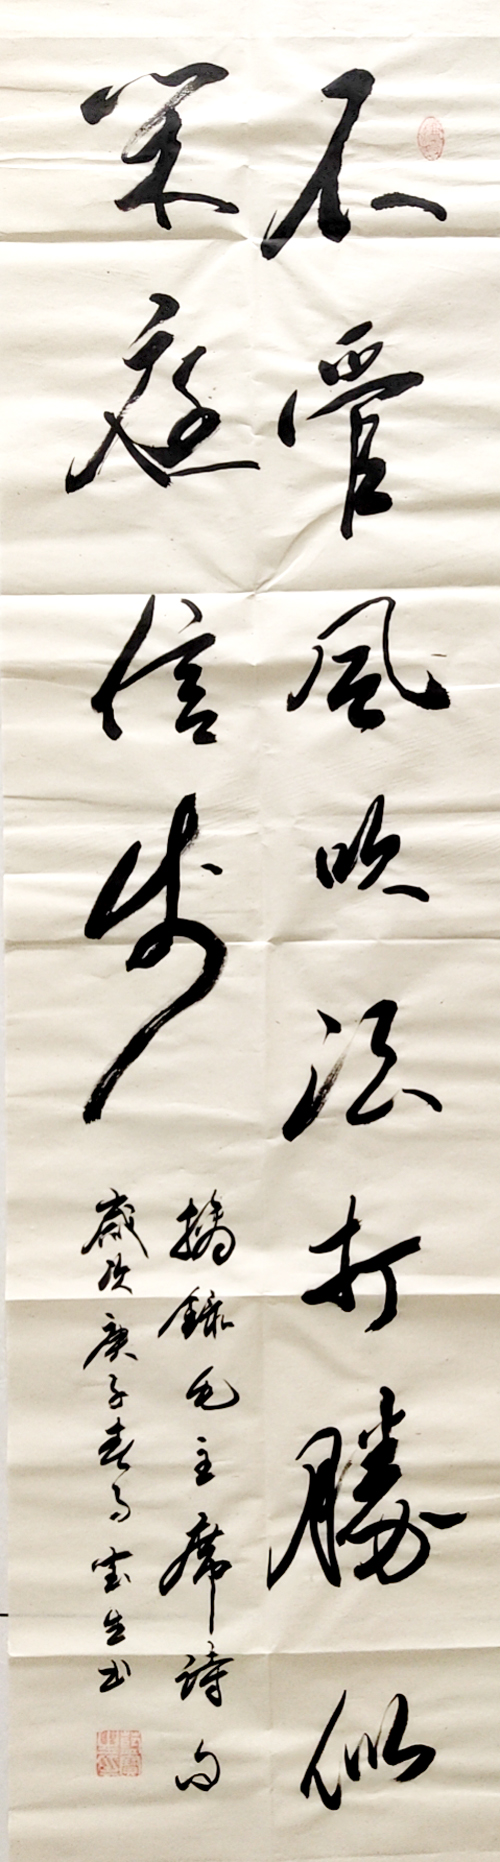 不管風吹浪打勝似
閑庭信步
摘錄毛主席詩句
歲次庚子春月宝生书